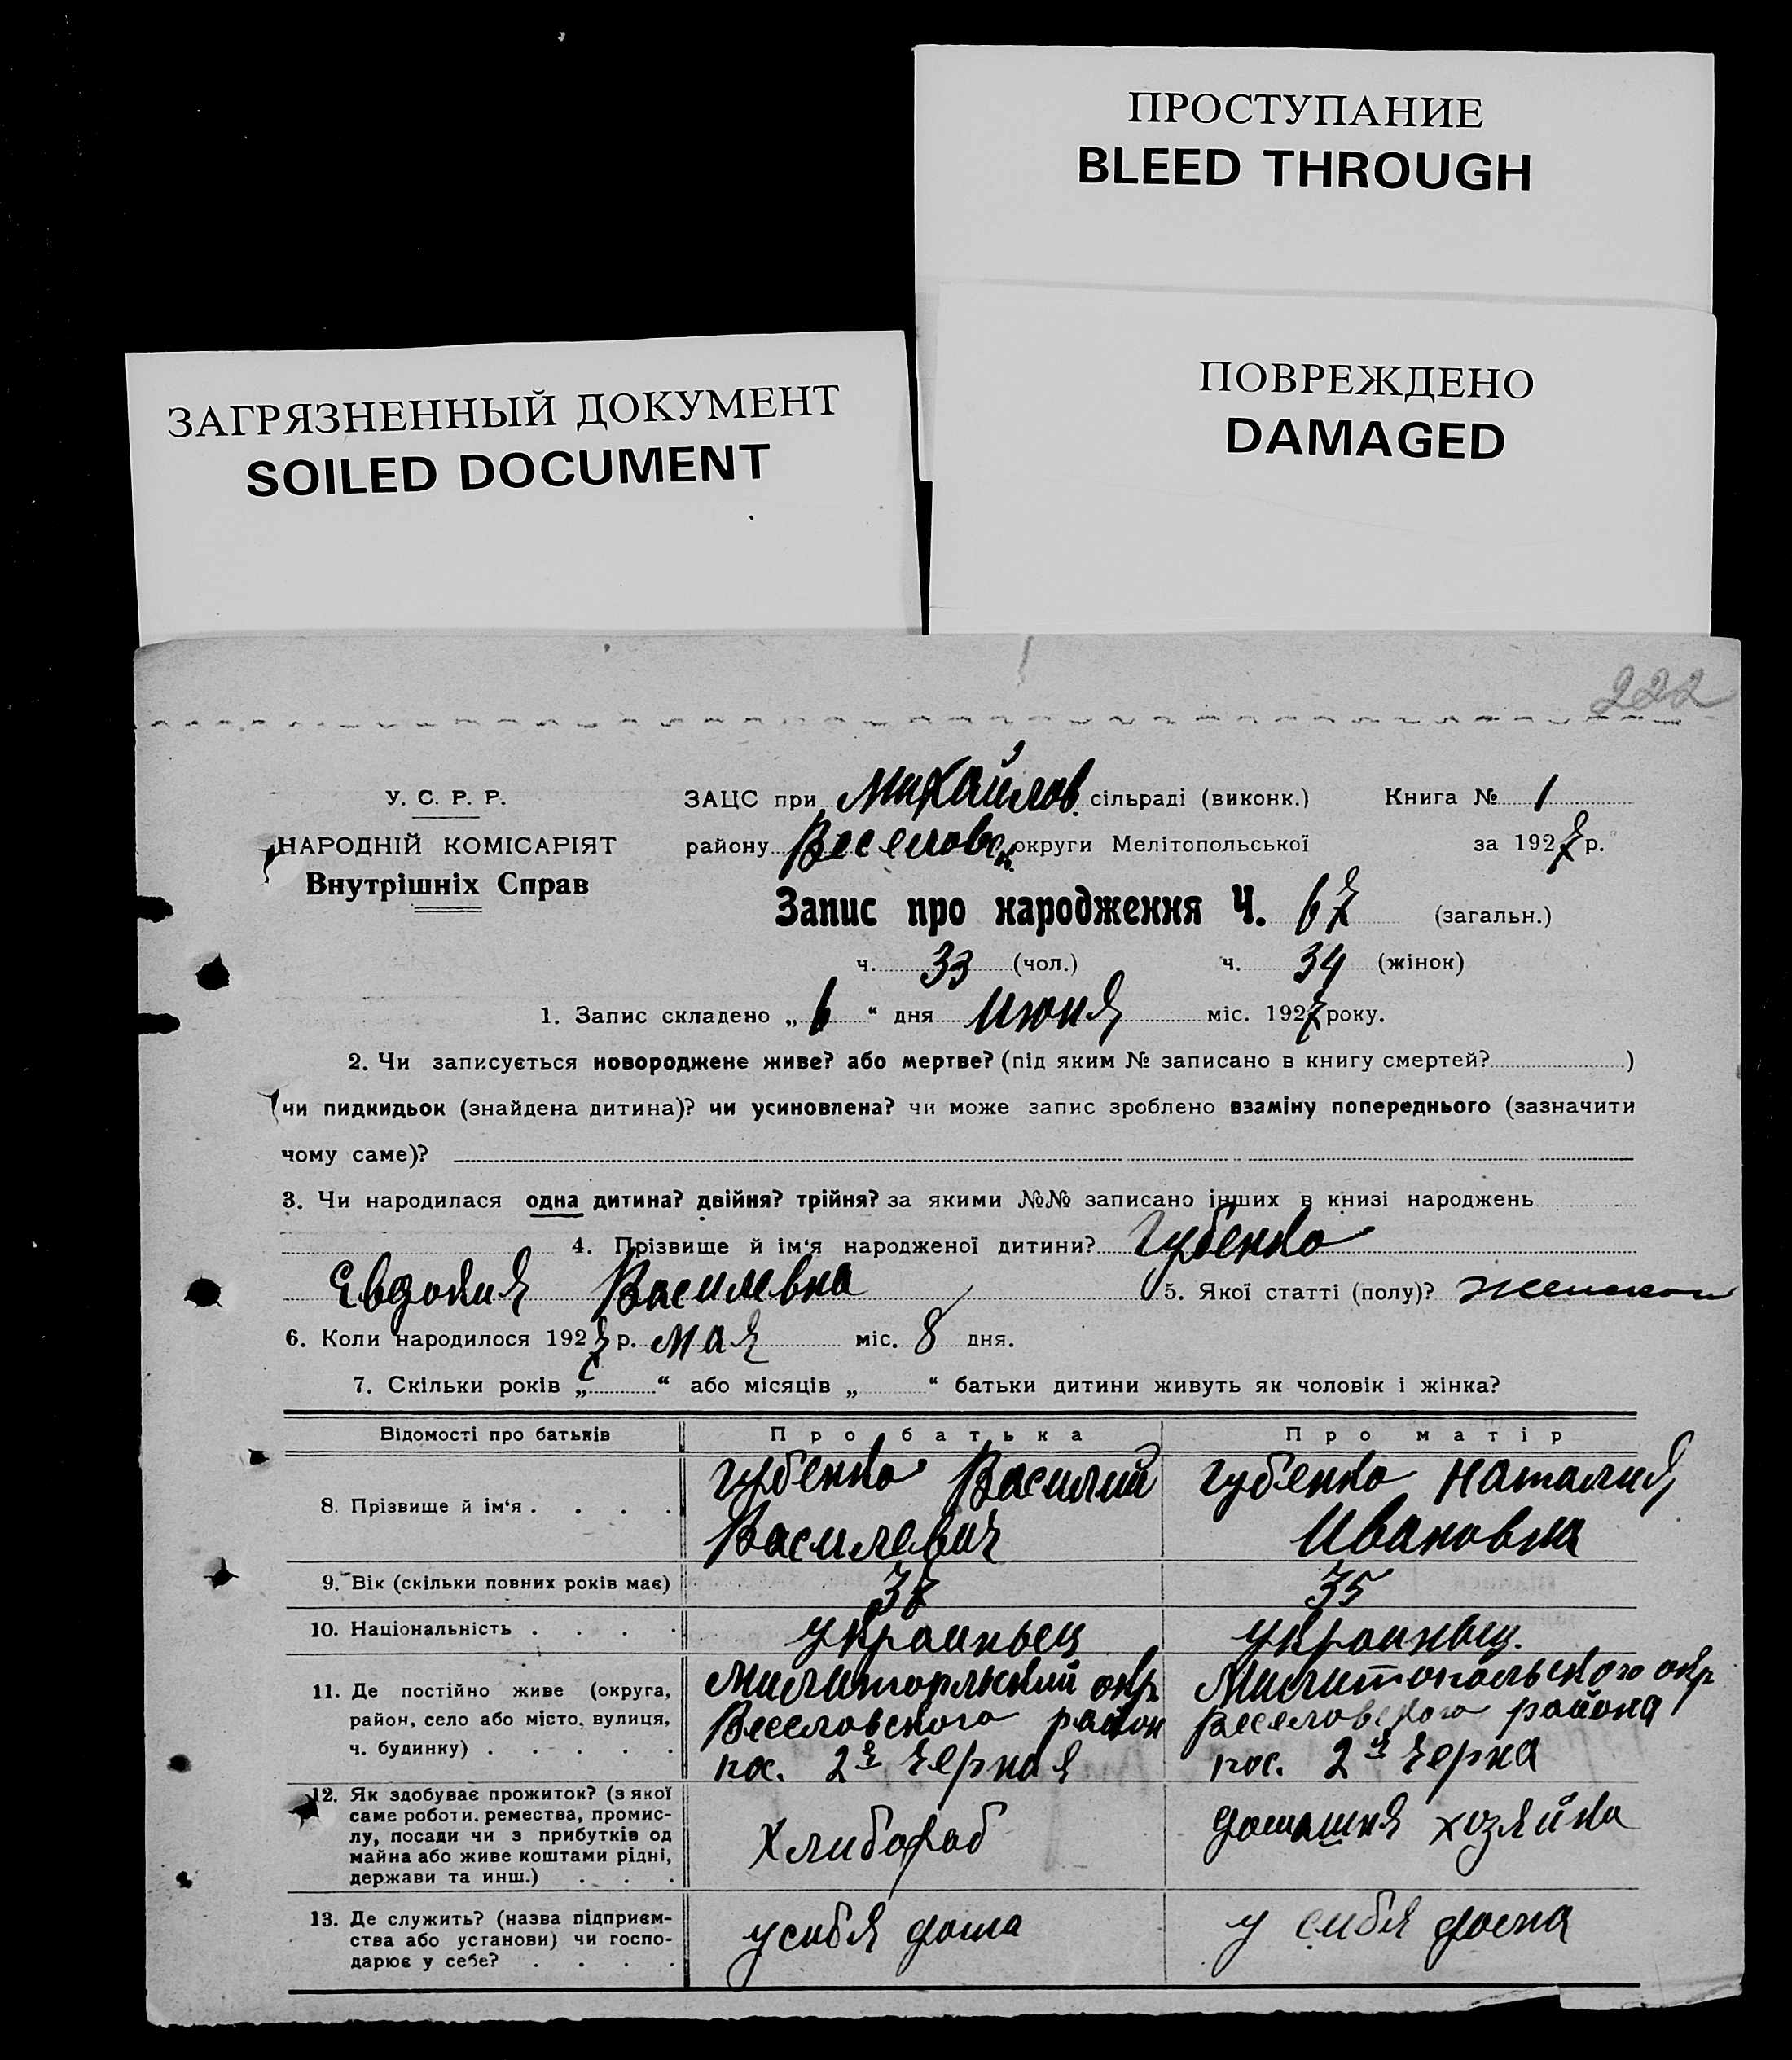 ПРОСТУПАНИЕ
BLEED THROUGH
ЗАГРЯЗНЕННЫЙ ДОКУМЕНТ
SOILED DOCUMENT
ПОВРЕЖДЕНО
DAMAGED
222
У. С. Р. Р.
НАРОДНІЙ КОМІСАРІЯТ
Внутрішніх Справ
ЗАЦС при Михайлов. сільраді (виконк.) Книга № 1
району Веселовск округи Мелітопольської за 1927 р.
Запис про народження Ч. 67 (загальн.)
ч. 33 (чол.) ч. 34 (жінок)
1. Запис складено „ 6 “ дня Июня міс. 1927 року.
2. Чи записується новороджене живе? або мертве? (під яким № записано в книгу смертей? )
чи пидкидьок (знайдена дитина)? чи усиновлена? чи може запис зроблено взаміну попереднього (зазначити
чому саме)?
3. Чи народилася одна дитина? двійня? трійня? за якими №№ записано інших в книзі народжень
4. Прізвище й ім‘я народженої дитини? Губенко
Евдокия Василевна 5. Якої статті (полу)? Женской
6. Коли народилося 1927 р. мая міс. 8 дня.
7. Скільки років „ “ або місяців „ “ батьки дитини живуть як чоловік і жінка?
Відомості про батьків Про батька Про матір
8. Прізвище й ім‘я . . . . Губенко Василий Василевич Губенко Наталия Ивановна
9. Вік (скільки повних років має) 37 35
10. Національність . . . . Украиньец Украиньец.
11. Де постійно живе (округа,
район, село або місто, вулиця,
ч. будинку) . . . . .
Милитопльский окр
Веселовского район
пос. 2я Черная
Милитопольского окр
Веселовского района
пос. 2я Черна
12. Як здобуває прожиток? (з якої
саме роботи, ремества, промис-
лу, посади чи з прибутків од
майна або живе коштами рідні,
держави та инш.) . . .
Хлибораб
домашня хозяйка
13. Де служить? (назва підприєм-
ства або установи) чи госпо-
дарює у себе? . . . .
у сибя дома
у сибя дома